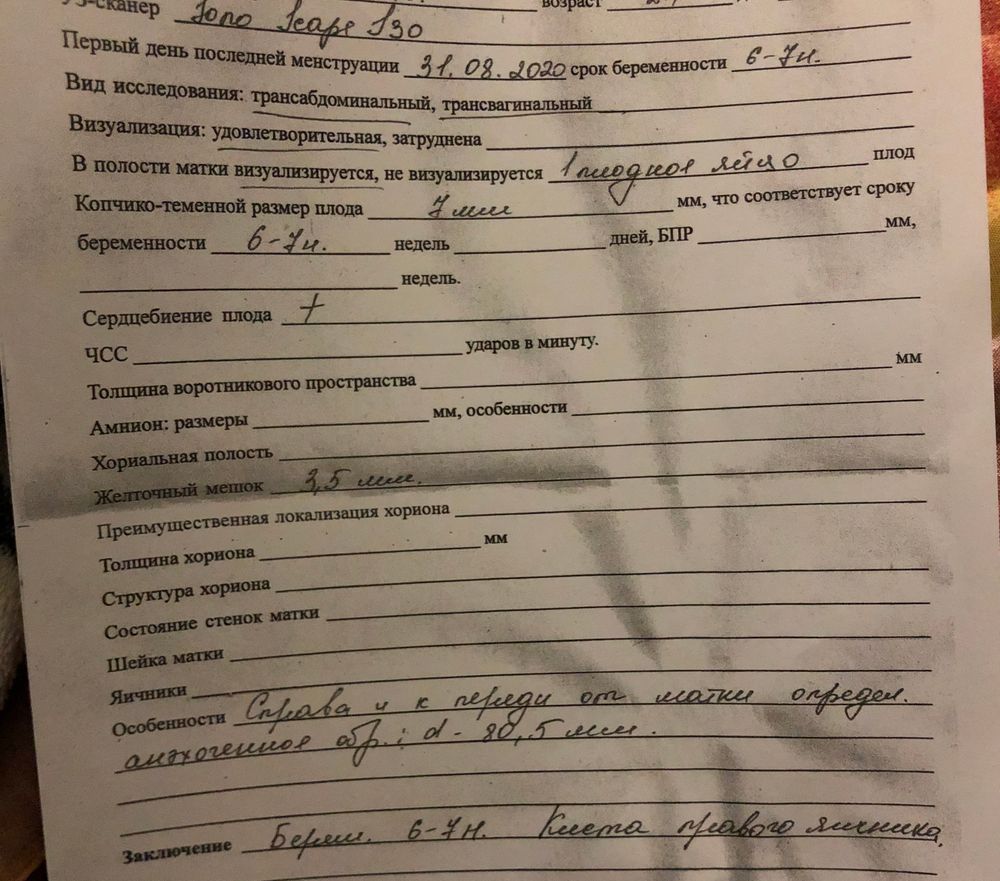 УЗ-сканер Sono Scape S30 возраст
Первый день последней менструации 31.08.2020 срок беременности 6-7н.
Вид исследования: трансабдоминальный, трансвагинальный
Визуализация: удовлетворительная, затруднена
В полости матки визуализируется, не визуализируется 1 плодное яйцо плод
Копчико-теменной размер плода 7 мм мм, что соответствует сроку
беременности 6-7н. недель дней, БПР мм,
недель.
Сердцебиение плода +
ЧСС ударов в минуту.
Толщина воротникового пространства мм
Амнион: размеры мм, особенности
Хориальная полость
Желточный мешок 3,5 мм.
Преимущественная локализация хориона
Толщина хориона мм
Структура хориона
Состояние стенок матки
Шейка матки
Яичники
Особенности Справа и к переди от матки определ.
анэхогенное обр.: d - 80,5 мм.
Заключение Берем. 6-7н. Киста правого яичника.